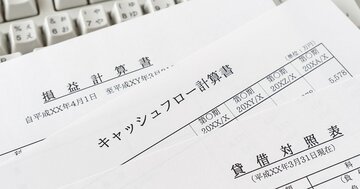 損益計算書
自平成XX年4月1日 至平成XY年3月3
キャッシュフロー計算書
(単位：万円)
第〇期 第〇期 第〇期 第〇期
20XX/X 20XY/X 20XZ/X 20XA/X
5,578
貸借対照表
(平成XX年3月31日現在)